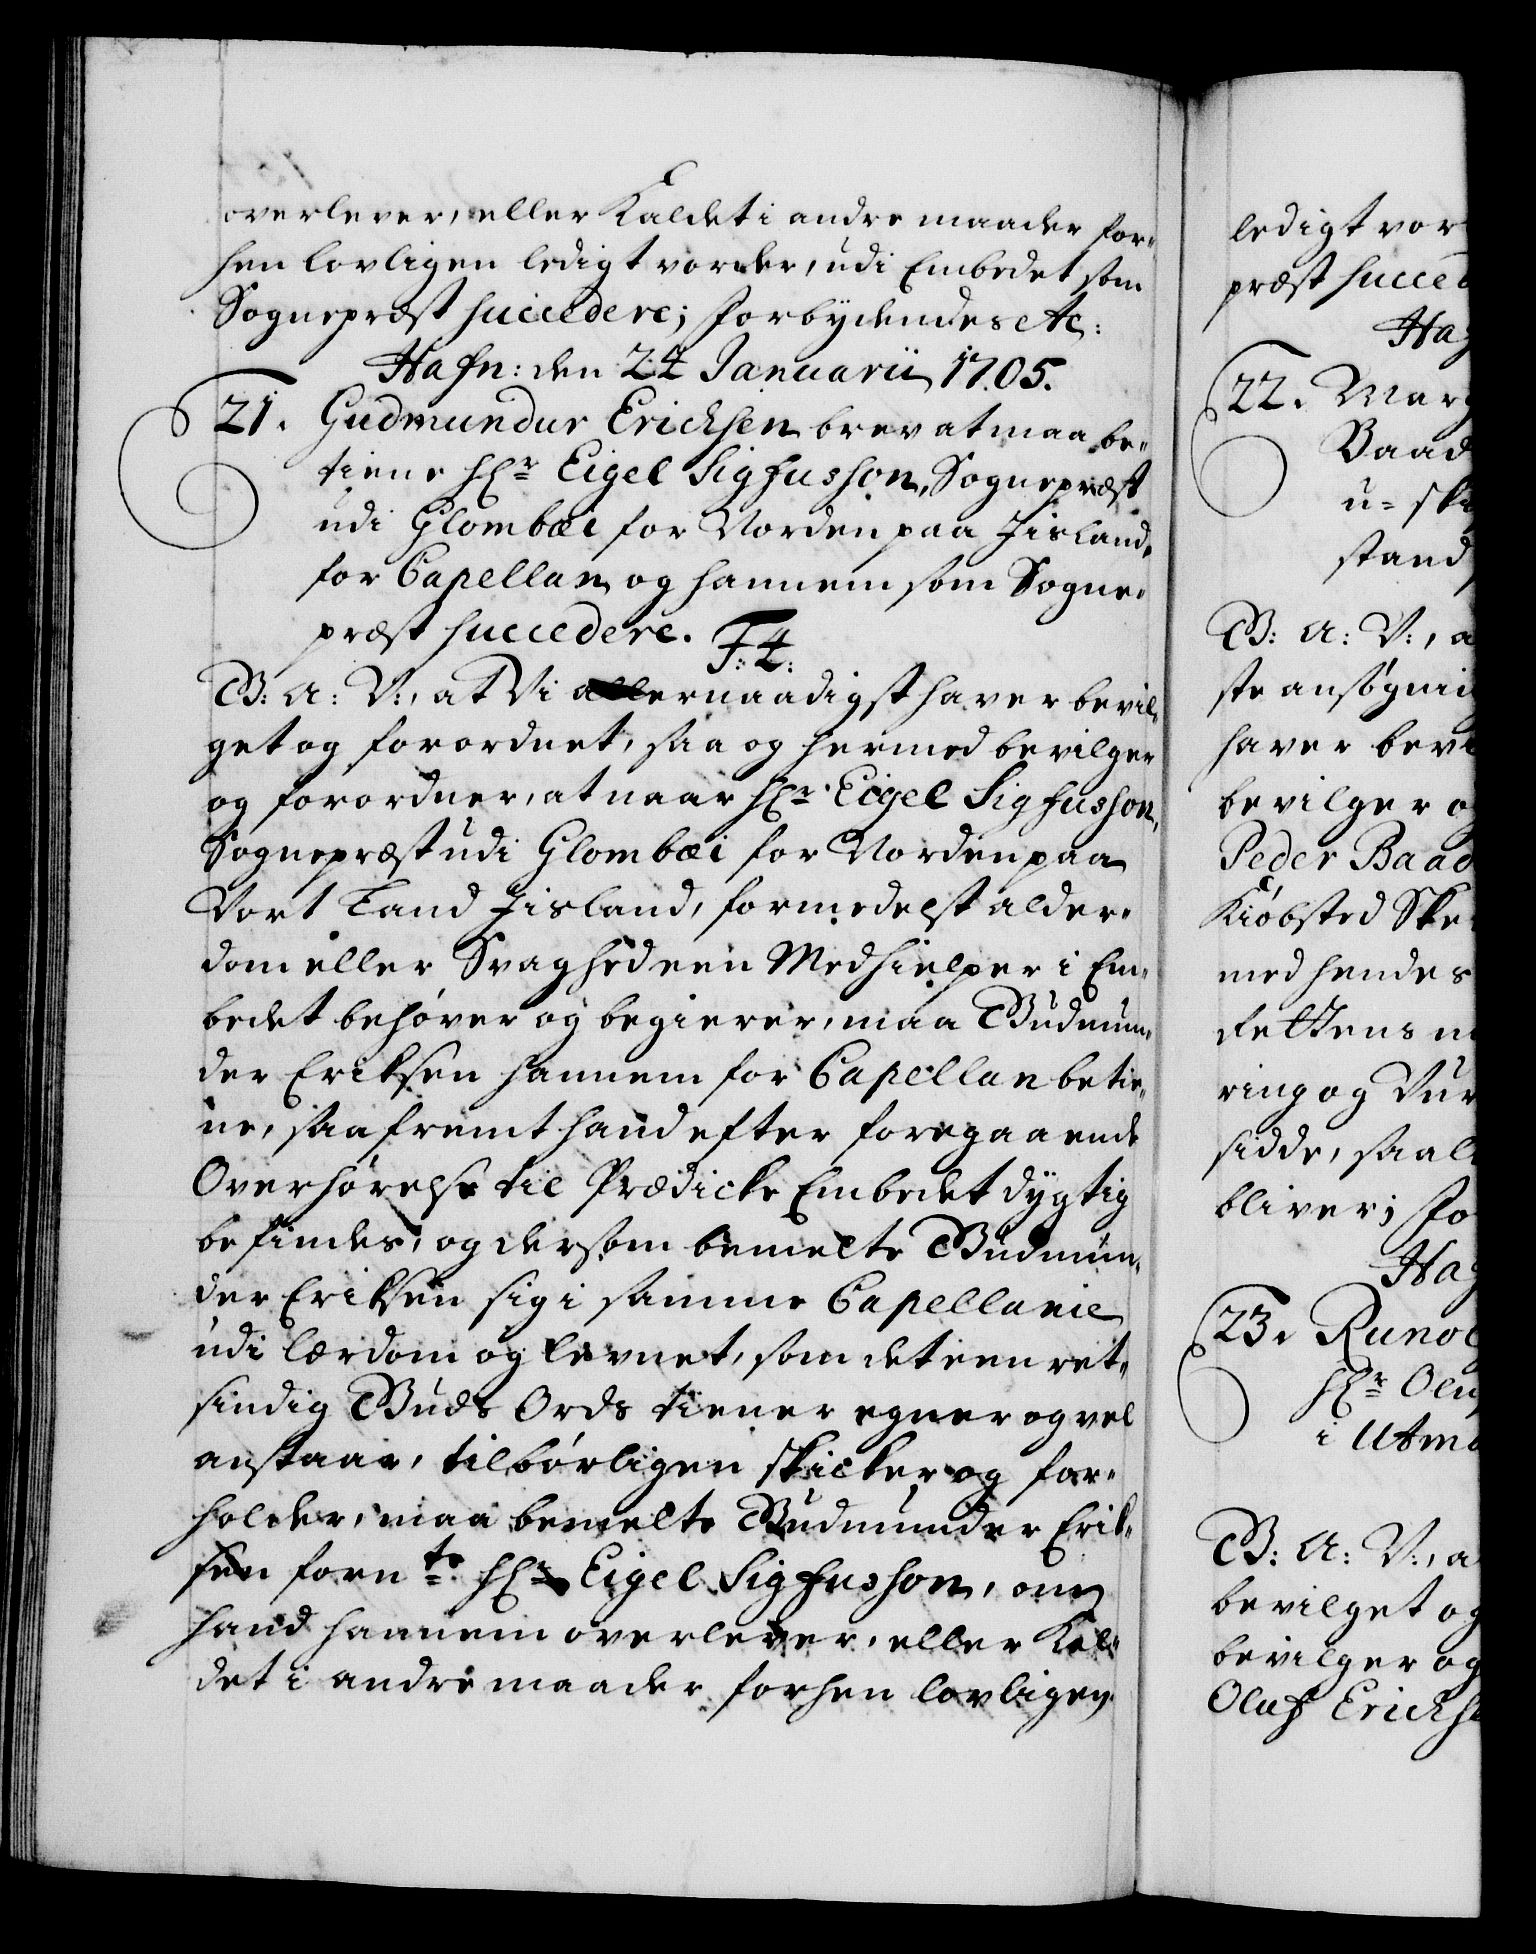 overlever, eller Kaldet i andre maader for-
hen lovligen ledigt vorder, udi Embedet som
Sognepræst succedere; Forbydendes etc:
Hafn: den 24 Januarii 1705.
21. Gudmundur Ericksen brev at maa be-
tiene Hr Eigel Sigfusson, Sognepræst
udi Glombæi for Norden paa Jisland,
for Capellan og hannem som Sogne-
præst succedere. F: 4:
G: A: V:, at Vi allernaadigst haver bevil-
get og forordnet, saa og hermed bevilger
og forordner, at naar Hr Eigel Sigfusson,
Sognepræst udi Glombæi for Norden paa
Vort Land Jisland, formedelst alder-
dom eller Svaghed een Medhielper i Em-
bedet behøver og begierer, maa Gudmun-
der Eriksen hannem for Capellan betie-
ne, saafremt hand efter foregaaende
Overhørelse til Prædicke Embedet dygtig
befindes, og dersom bemelte Gudmun-
der Eriksen sig i samme Capellanie
udi lærdom og levnet, som det een ret-
sindig Guds Ords tiener egner og vel
anstaar, tilbørligen skicker og for-
holder, maa bemelte Gudmunder Erik-
sen fornte Hr Eigel Sigfusson, om
hand hannem overlever, eller Kal-
det i andre maader forhen lovligen
ledigt vor
præst succed
Haf
22. Marg
Baad
u-ski
stand
G: A: V:, a
ste ansøgnin
haver bevi
bevilger o
Peder Baad
Kiøbsted Ske
med hendes
fettens m
ring og Vur
sidde, saal
bliver; Fo
Haf
23. Runol
Hr Olu
i Utma
G: A: V:, a
bevilget og
bevilger og
Oluf Ericks